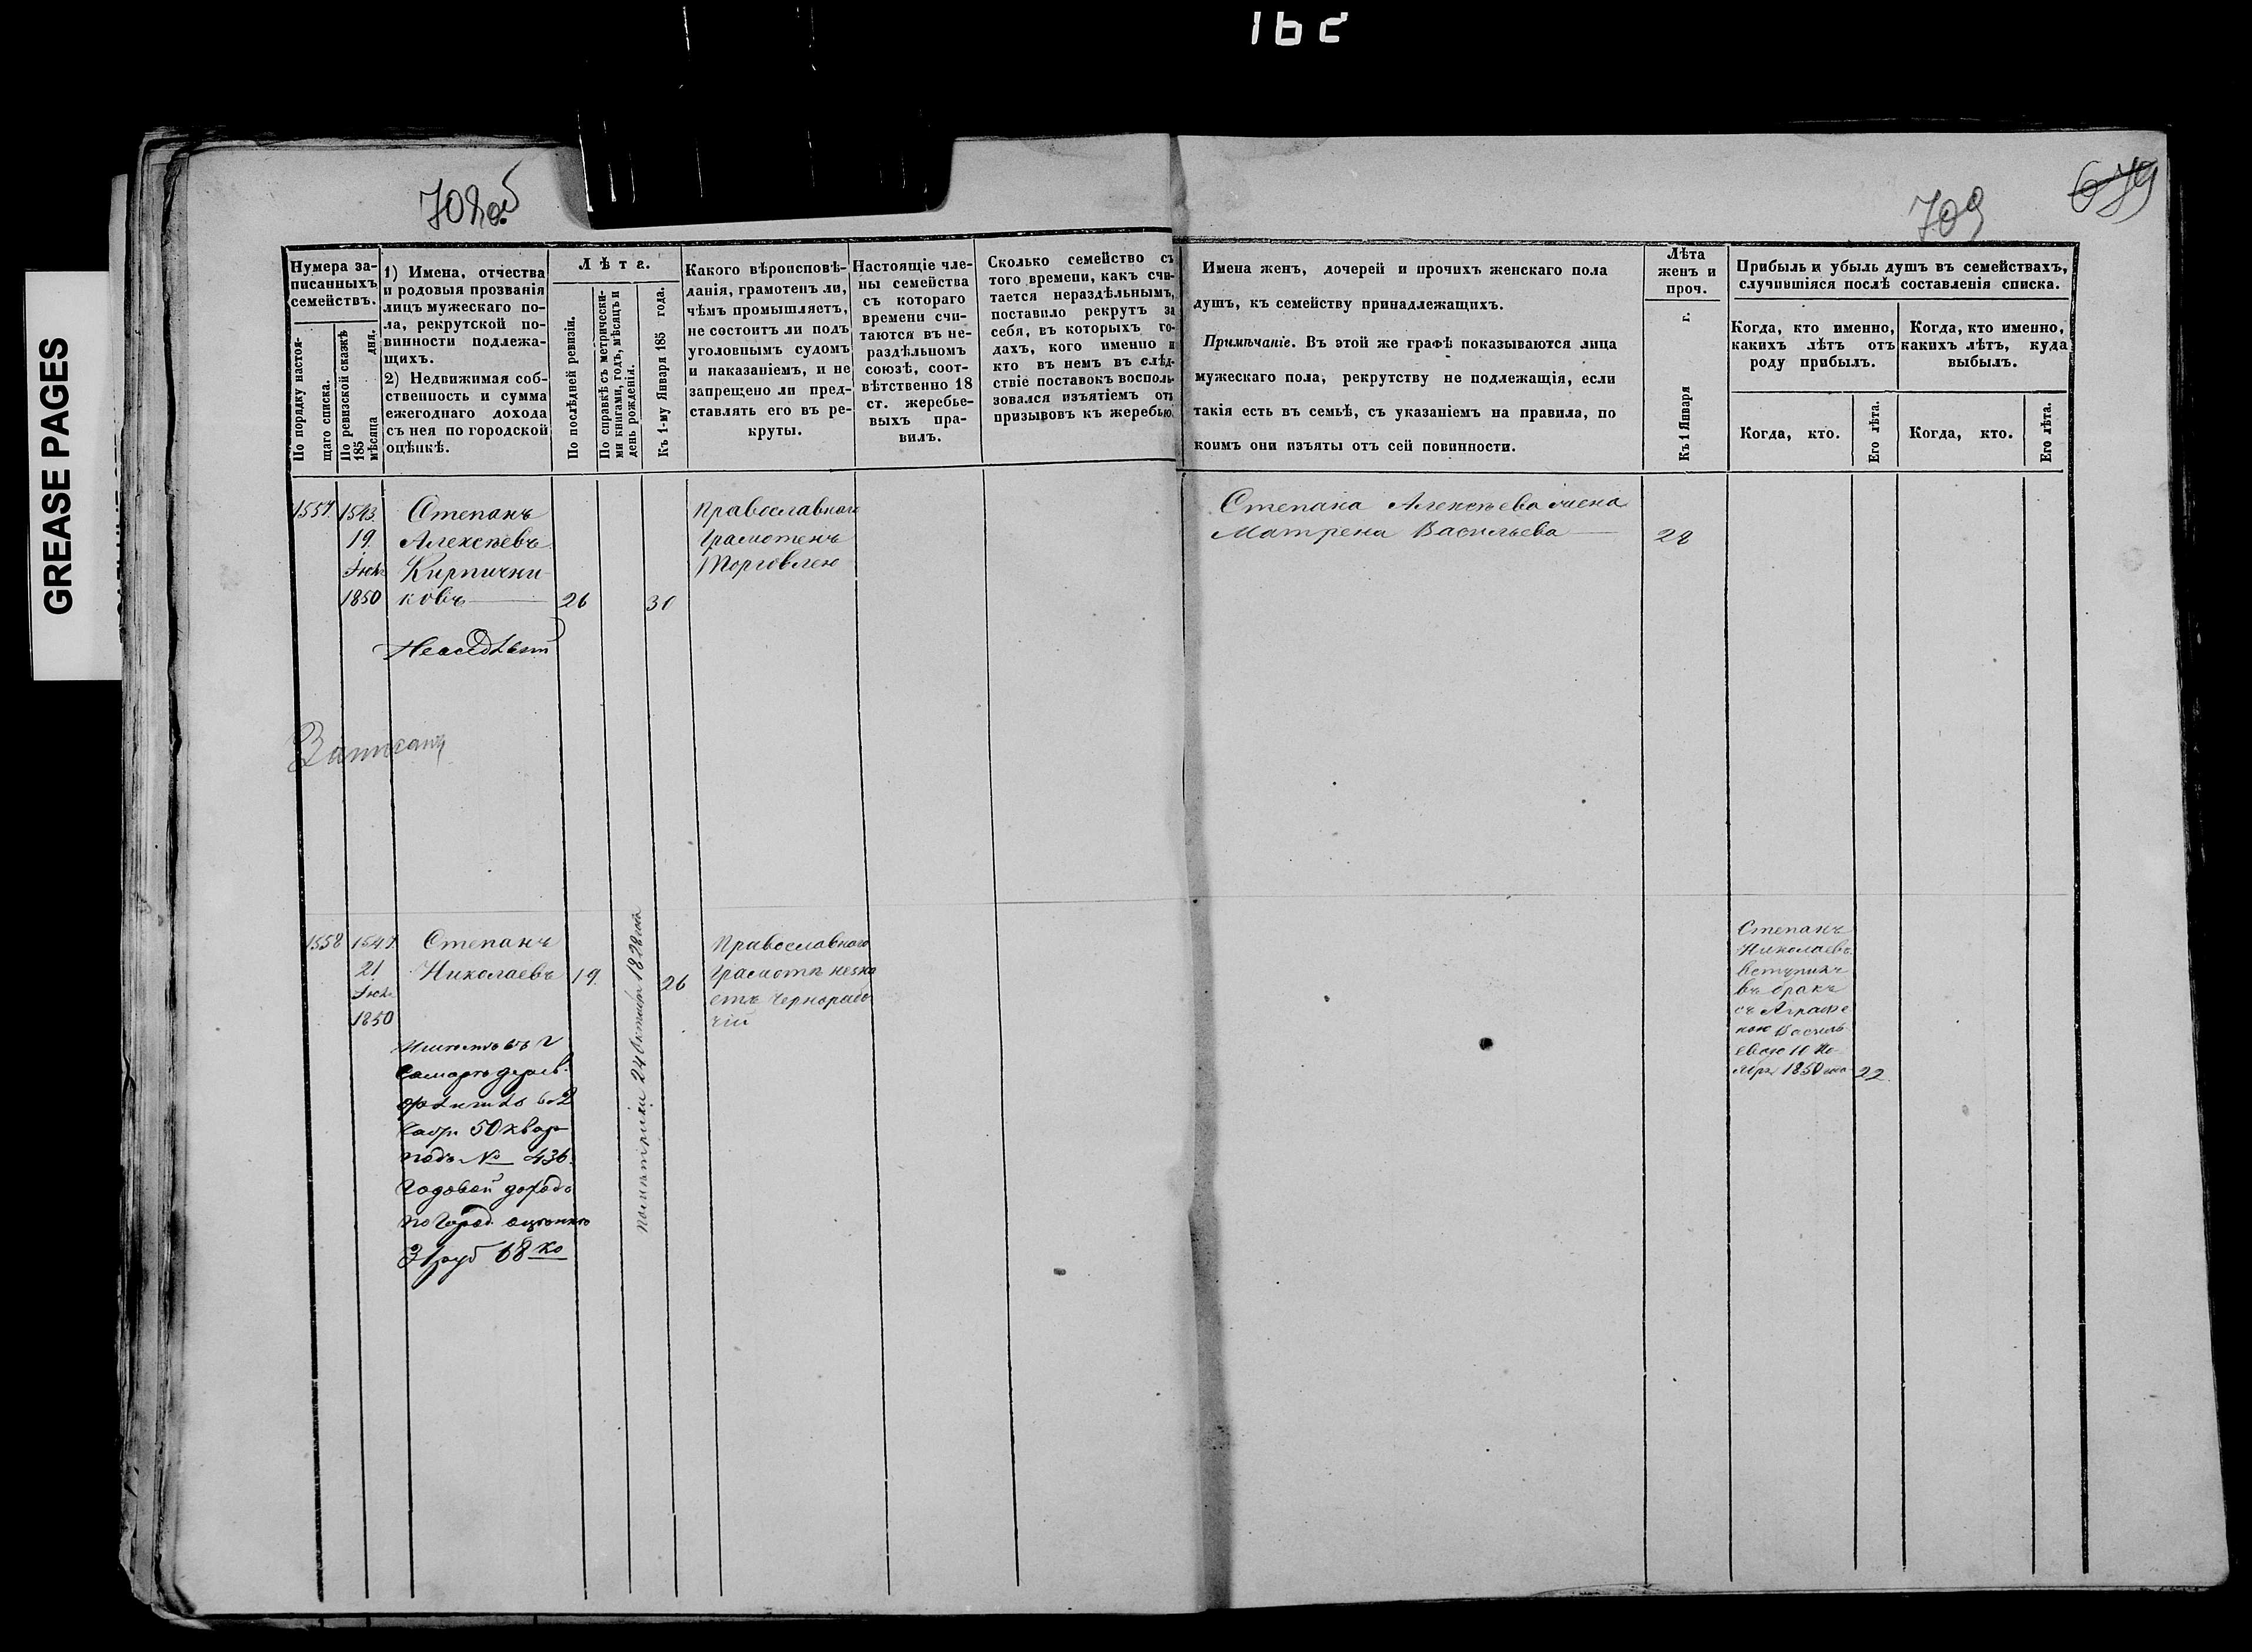 162
GREASE PAGES
708 об
709
679
Нумера за-
писанныхъ
семействъ.
По порядку настоя-
щаго списка.
По ревизской сказкѣ
185
мѣсяца дня.
1) Имена, отчества
и родовыя прозванія
лицъ мужескаго по-
ла, рекрутской по-
винности подлежа-
щихъ.
2) Недвижимая соб-
ственность и сумма
ежегоднаго дохода
съ нея по городской
оцѣнкѣ.
Лѣта.
По послѣдней ревизіи.
По справкѣ съ метрически-
ми книгами, годъ, мѣсяцъ и
день рожденія.
Къ 1-му Января 185 года.
Какого вѣроисповѣ-
данія, грамотенъ ли,
чѣмъ промышляетъ,
не состоитъ ли подъ
уголовнымъ судомъ
и наказаніемъ, и не
запрещено ли пред-
ставлять его въ ре-
круты.
Настоящіе чле-
ны семейства
съ котораго
времени счи-
таются въ не-
раздѣльномъ
союзѣ, соот-
вѣтственно 18
ст. жеребье-
выхъ пра-
вилъ.
Сколько семейство съ
того времени, какъ счи-
тается нераздѣльнымъ,
поставило рекрутъ за
себя, въ которыхъ го-
дахъ, кого именно и
кто въ немъ въ слѣд-
ствіе поставокъ восполь-
зовался изъятіемъ отъ
призывовъ къ жеребью.
Имена женъ, дочерей и прочихъ женскаго пола
душъ, къ семейству принадлежащихъ.
Примѣчаніе. Въ этой же графѣ показываются лица
мужескаго пола, рекрутству не подлежащія, если
такія есть въ семьѣ, съ указаніемъ на правила, по
коимъ они изъяты отъ сей повинности.
Лѣта
женъ и
проч.
Къ 1 Января г.
Прибыль и убыль душъ въ семействахъ,
случившіяся послѣ составленія списка.
Когда, кто именно,
какихъ лѣтъ отъ
роду прибылъ.
Когда, кто именно,
какихъ лѣтъ, куда
выбылъ.
Когда, кто.
Его лѣта.
Когда, кто.
Его лѣта.
1557. 1543.
19.
1850
Степанъ
Алексѣевъ
Кирпични
ковъ
26
30
Православнаго
Грамотенъ
Торговлею
Степана Алексѣева жена
Матрена Васильева
28
Записаны
1558 1547.
21
1850
Степанъ
Николаевъ
19.
по метрики 24 Октября 1828 года
26
Православнаго
Грамотѣ незна
етъ Чернорабо
чій
подъ № 436.
Годовой доходъ
по Город. оцѣнкѣ
3 руб 68 ко
Степанъ
Николаевъ
вступилъ
въ бракъ
съ Аграфе
ною Василь
евою 10 Но-
ября 1850 года
22.